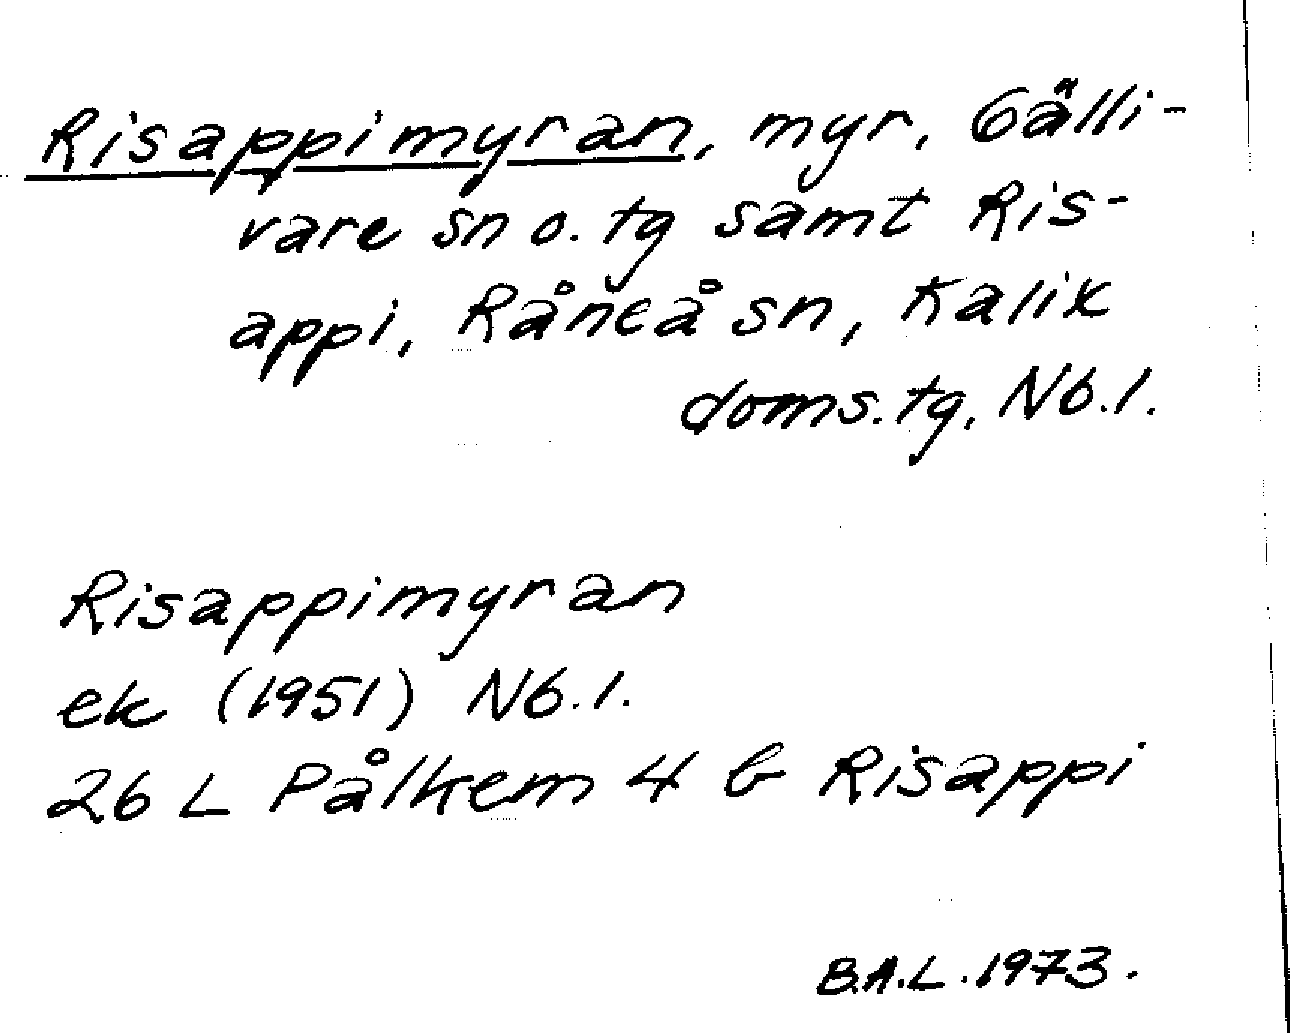 Risappimyran, myr, Gälli-
vare sn o. tg samt Ris-
appi, Råneå sn, Kalix
doms.tg, Nb.l.
Risappimyran
ek (1951) Nb.l.
26 L Pålkem 4 b Risappi
B.A.L. 1973.